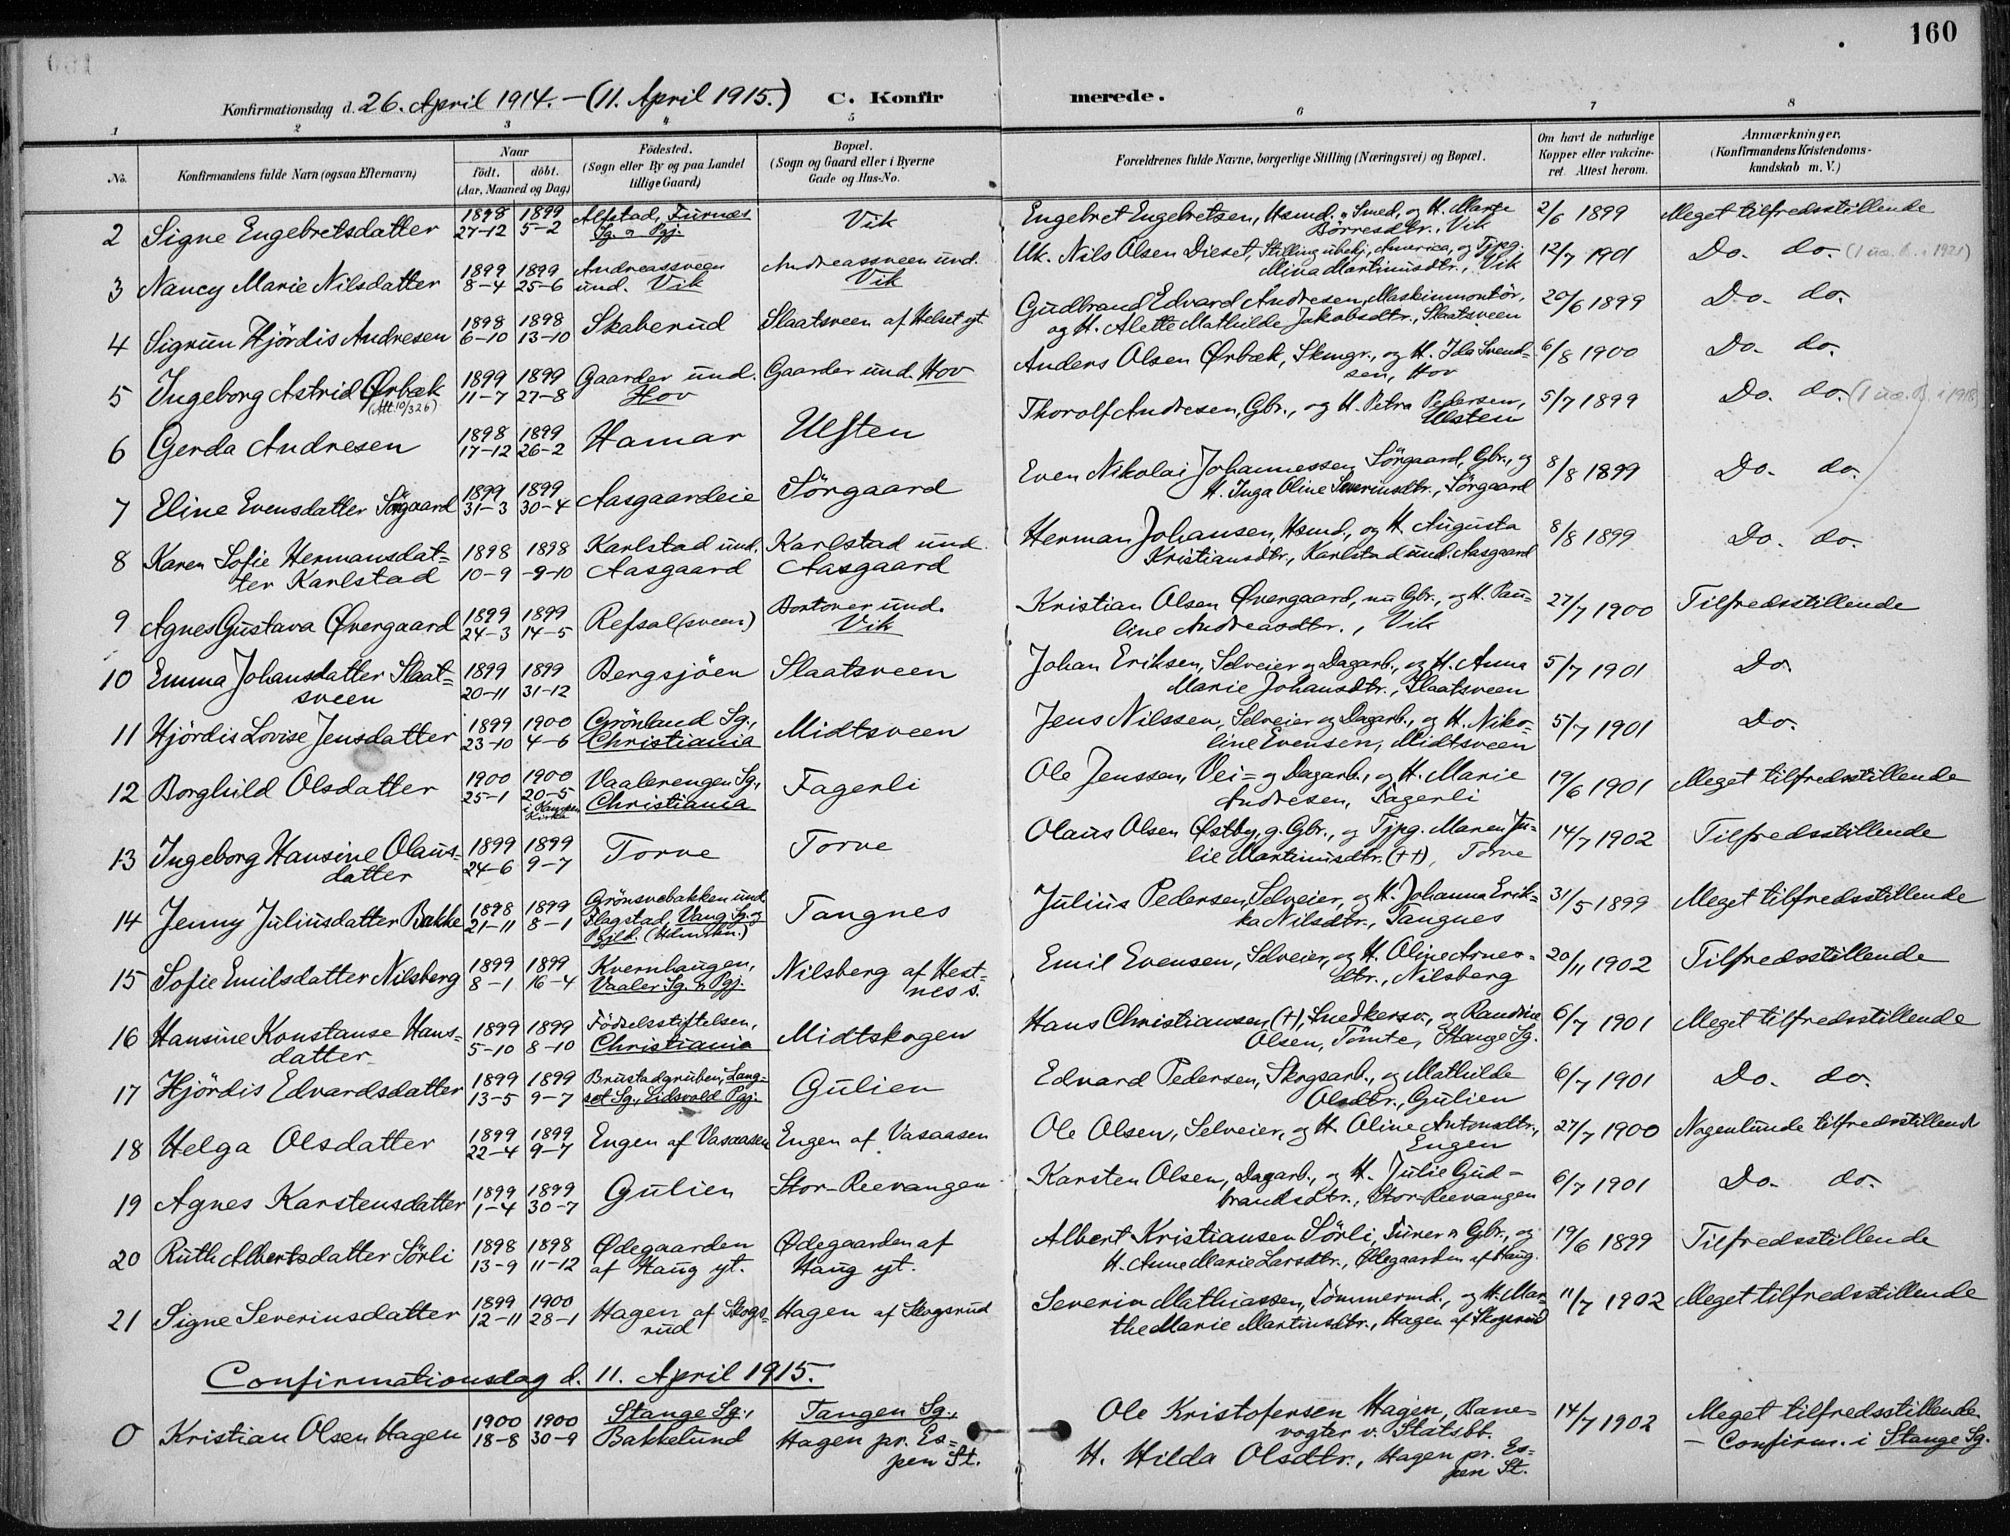 160
Konfirmationsdag d. 26. April 1914. – (11. April 1915.) C. Konfirmerede.
1 2 3 4 5 6 7 8
No. Konfirmandens fulde Navn (ogsaa Efternavn) Naar født. døbt. (Aar, Maaned og Dag) Fødested. (Sogn eller By og paa Landet tillige Gaard) Bopæl. (Sogn og Gaard eller i Byerne Gade og Hus-No. Forældrenes fulde Navne, borgerlige Stilling (Næringsvei) og Bopæl. Om havt de naturlige Kopper eller vakcineret. Attest herom. Anmærkninger. (Konfirmandens Kristendomskundskab m. V.)
2 Signe Engebretsdatter 1898 27-12 1899 5-2 Alfstad, Furnæs Sg. og Pgj. Vik Engebret Engebretsen, Hsmd. og Smed, og H. Marte Børresdtr., Vik 2/6 1899 Meget tilfredsstillende
3 Nancy Marie Nilsdatter 1899 8-4 1899 25-6 Andreassveen und. Vik Andreassveen und. Vik Uk. Nils Olsen Dieset, Stilling ubekj., America, og Tjpg. Mina Martinusdtr., Vik 12/7 1901 Do. do. (1 ua. A. i 1921)
4 Sigrun Hjördis Andresen 1898 6-10 1898 13-10 Skaberud Slaatsveen af Helset yt Gudbrand Edvard Andresen, Maskinmontör, og H. Alette Mathilde Jakobsdtr., Slaatsveen 20/6 1899 Do. do.
5 Ingeborg Astrid Ørbæk (Att. 10/3 26) 1899 11-7 1899 27-8 Gaarder und. Hov Gaarder und. Hov Anders Olsen Ørbæk, Skmgr., og H. Ida Svendsen, Hov 6/8 1900 Do. do.
6 Gerda Andresen 1898 17-12 1899 26-2 Hamar Ulsten Thorolf Andresen, Gbr., og H. Petra Pedersen, Ulsten 5/7 1899 Do. do. (1 ua. B. i 1918)
7 Eline Evensdatter Sörgaard 1899 31-3 1899 30-4 Aasgaardeie Sörgaard Even Nikolai Johannessen Sörgaard, Gbr., og H. Inga Oline Severinsdtr., Sörgaard 8/8 1899 Do. do.
8 Karen Sofie Hermansdatter Karlstad 1898 10-9 1898 -9-10 Karlstad und. Aasgaard Karlstad und. Aasgaard Herman Johansen, Hsmd., og H. Augusta Kristiansdtr., Karlstad und. Aasgaard 8/8 1899 Do. do.
9 Agnes Gustava Øvergaard 1899 24-3 1899 14-5 Refsal(sveen) Bortover und. Vik Kristian Olsen Øvergaard, nu Gbr., og H. Pauline Andreasdtr., Vik 27/7 1900 Tilfredsstillende
10 Emma Johansdatter Slaatsveen 1899 20-11 1899 31-12 Bergsjöen Slaatsveen Johan Eriksen, Selveier og Dagarb., og H. Anna Marie Johansdtr., Slaatsveen 5/7 1901 Do.
11 Hjördis Lovise Jensdatter 1899 23-10 1900 4-6 Grönland Sg., Christiania Midtsveen Jens Nilssen, Selveier og Dagarb., og H. Nikoline Evensen, Midtsveen 5/7 1901 Do.
12 Borghild Olsdatter 1900 25-1 1900 20-5 i Kampen Kirke Vaalerengen Sg., Christiania Fagerli Ole Jenssen, Vei= og Dagarb., og H. Marie Andresen, Fagerli 19/6 1901 Meget tilfredsstillende
13 Ingeborg Hansine Olausdatter 1899 24-6 1899 9-7 Torve Torve Olaus Olsen Østby, g. Gbr., og Tjpg. Maren Julie Martinusdtr. (++), Torve 14/7 1902 Tilfredsstillende
14 Jenny Juliusdatter Bakke 1898 21-11 1899 8-1 Grönsvebakken und. Flagstad, Vang Sg. og Pgjld. (Hdmrkn.) Tangnes Julius Pedersen, Selveier, og H. Johanna Erikka Nilsdtr., Tangnes 31/5 1899 Meget tilfredsstillende
15 Sofie Emilsdatter Nilsberg 1899 8-1 1899 16-4 Kvernhaugen, Vaaler Sg. og Pgj. Nilsberg af Hestnes s. Emil Evensen, Selveier, og H. Oline Arnesdtr., Nilsberg 20/11 1902 Tilfredsstillende
16 Hansine Konstanse Hansdatter 1899 5-10 1899 8-10 Födselsstiftelsen, Christiania Midtskogen Hans Christiansen (+), Snedkersv., og Randine Olsen, Tömte, Stange Sg. 6/7 1901 Meget tilfredsstillende
17 Hjördis Edvardsdatter 1899 13-5 1899 9-7 Brustadgruben, Langset Sg., Eidsvold Pgj. Gulien Edvard Pedersen, Skogsarb., og Mathilde Olsdtr., Gulien 6/7 1901 Do. do.
18 Helga Olsdatter 1899 22-4 1899 9-7 Engen af Vasaasen Engen af Vasaasen Ole Olsen, Selveier, og H. Oline Antonsdtr., Engen 27/7 1900 Nogenlunde tilfredsstillend
19 Agnes Karstensdatter 1899 1-4 1899 30-7 Gulien Stor-Reevangen Karsten Olsen, Dagarb., og H. Julie Gudbrandsdtr., Stor-Reevangen 6/7 1901 Do. do.
20 Ruth Albertsdatter Sörli 1898 13-9 1898 11-12 Ødegaarden af Haug yt. Ødegaarden af Haug yt. Albert Kristiansen Sörli, Turer og Gbr., og H. Anne Marie Larsdtr., Ødegaarden af Haug. 19/6 1899 Tilfredsstillende
21 Signe Severinsdatter 1899 12-11 1900 28-1 Hagen af Skogsrud Hagen af Skogsrud Severin Mathiassen, Tömmermd., og H. Marthe Marie Martinsdtr., Hagen af Skogsrud 11/7 1902 Meget tilfredsstillende
Confirmationsdag d. 11. April 1915.
0 Kristian Olsen Hagen 1900 18-8 1900 30-9 Stange Sg., Bakkelund Tangen Sg., Hagen pr. Espen St. Ole Kristofersen Hagen, Banevogter v. Statsbb. H. Hilda Olsdtr., Hagen pr. Espen St. 14/7 1902 Meget tilfredsstillende – Confirm. i Stange Sg.